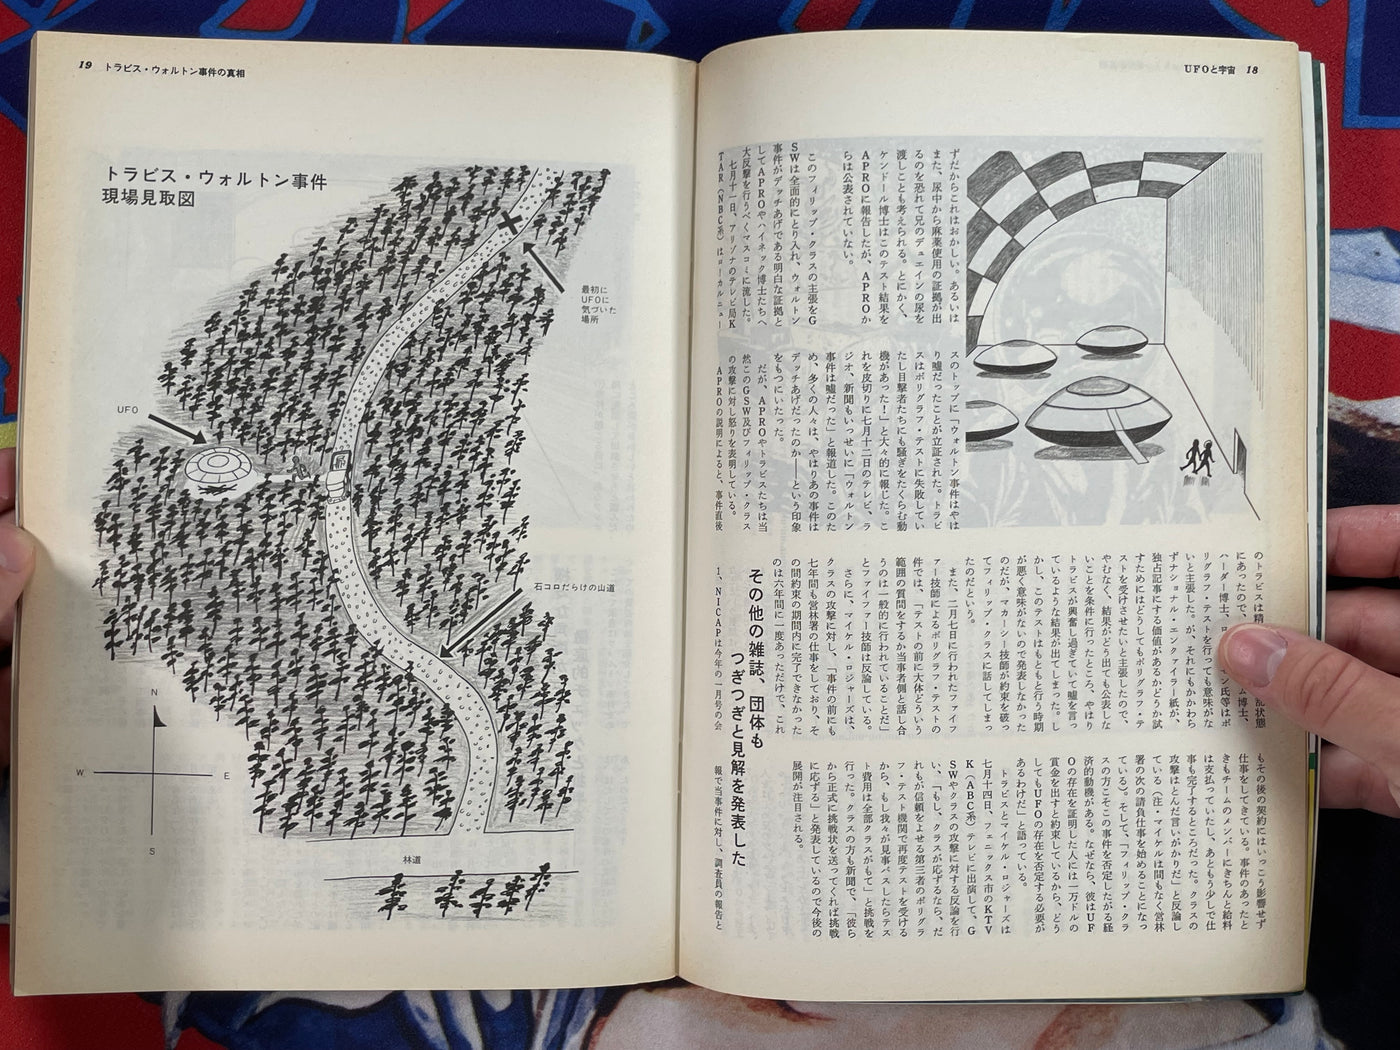 UFOと宇宙 18
ずだからこれはおかしい。あるいは
また、尿中から麻薬使用の証拠が出
るのを恐れて兄のデュエインの尿を
渡しことも考えられる。とにかく、
ケンドール博士はこのテスト結果を
APROに報告したが、APROか
らは公表されていない。
このフィリップ・クラスの主張をG
SWは全面的にとり入れ、ウォルトン
事件がデッチあげである明白な証拠と
してAPROやハイネック博士たちへ
大反撃を行うべくマスコミに流した。
七月十一日、アリゾナのテレビ局K
TAR（NBC系）はローカルニュー
スのトップに「ウォルトン事件はやは
り嘘だったことが立証された。トラビ
スはポリグラフ・テストに失敗してい
たし目撃者たちにも騒ぎをたくらむ動
機があった！」と大々的に報じた。こ
れを皮切りに七月十二日のテレビ、ラ
ジオ、新聞もいっせいに「ウォルトン
事件は嘘だった」と報道した。このた
め、多くの人々は、やはりあの事件は
デッチあげだったのか――という印象
をもつにいたった。
だが、APROやトラビスたちは当
然このGSW及びフィリップ・クラス
の攻撃に対し怒りを表明している。
APROの説明によると、事件直後
のトラビスは精 乱状態
にあったので、 ム博士、
ハーダー博士、ロ ン氏等はポ
リグラフ・テストを行っても意味がな
いと主張した。が、それにもかかわら
ずナショナル・エンクァイラー紙が、
独占記事にする価値があるかどうか試
すためにはどうしてもポリグラフ・テ
ストを受けさせたいと主張したので、
やむなく、結果がどう出ても公表しな
いことを条件に行ったところ、やはり
トラビスが興奮し過ぎていて嘘を言っ
ているような結果が出てしまった。し
かし、このテストはもともと行う時期
が悪く意味がないので発表しなかった
のだが、マカーシー技師が約束を破っ
てフィリップ・クラスに話してしまっ
たのだという。
また、二月七日に行われたファイフ
ァー技師によるポリグラフ・テストの
件では、「テストの前に大体どういう
範囲の質問をするか当事者側と話し合
うのは一般的に行われていることだ」
とファイファー技師は反論している。
さらに、マイケル・ロジャーズは、
クラスの攻撃に対し、「事件の前にも
七年間も営林署の仕事をしており、そ
の間約束の期間内に完了できなかった
のは六年間に一度あっただけで、これ
もその後の契約にはいっこう影響せず
仕事をしてきている。事件のあったと
きもチームのメンバーにきちんと給料
は支払っていたし、あともう少しで仕
事も完了するところだった。クラスの
攻撃はとんだ言いがかりだ」と反論し
ている（注・マイケルは間もなく営林
署の次の請負仕事を始めることになっ
ている）。そして、「フィリップ・クラ
スの方こそこの事件を否定したがる経
済的動機がある。なぜなら、彼はUF
Oの存在を証明した人には一万ドルの
賞金を出すと約束しているから、どう
してもUFOの存在を否定する必要が
あるわけだ」と語っている。
トラビスとマイケル・ロジャーズは
七月十四日、フェニックス市のKTV
K（ABC系）テレビに出演して、G
SWやクラスの攻撃に対する反論を行
い、「もし、クラスが応ずるなら、だ
れもが信頼をよせる第三者のポリグラ
フ・テスト機関で再度テストを受ける
から、もし我々が見事パスしたらテス
ト費用は全部クラスがもて」と挑戦を
行った。クラスの方も新聞で、「彼ら
から正式に挑戦状を送ってくれば挑戦
に応ずる」と発表しているので今後の
展開が注目される。
その他の雑誌、団体も
つぎつぎと見解を発表した
1、NICAPは今年の一月号の会
報で当事件に対し、調査員の報告と
19 トラビス・ウォルトン事件の真相
トラビス・ウォルトン事件
現場見取図
最初に
UFOに
気づいた
場所
UFO
石コロだらけの山道
N
W E
S
林道